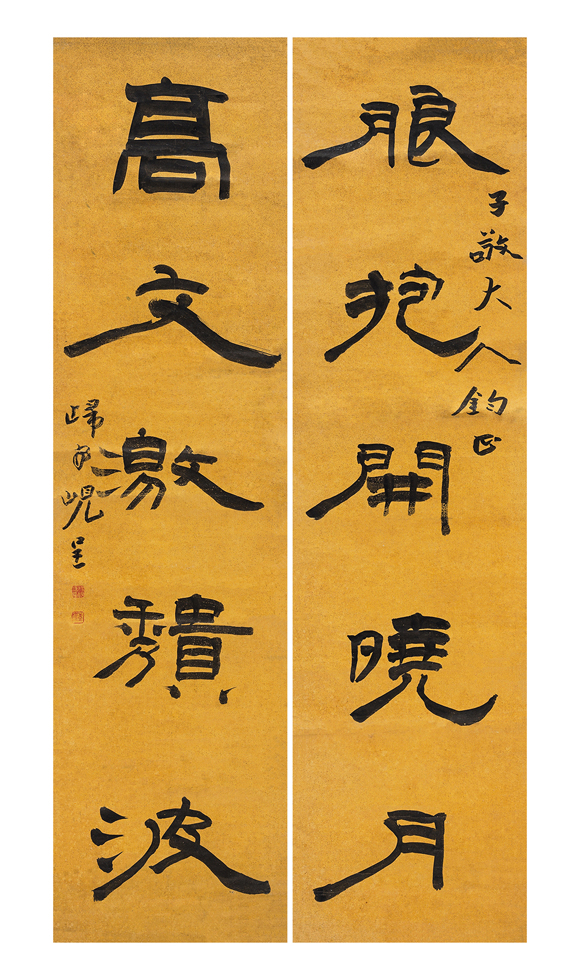 子敬大人鈞正
朖抱開曉月
高文激穨波
歸安峴呈